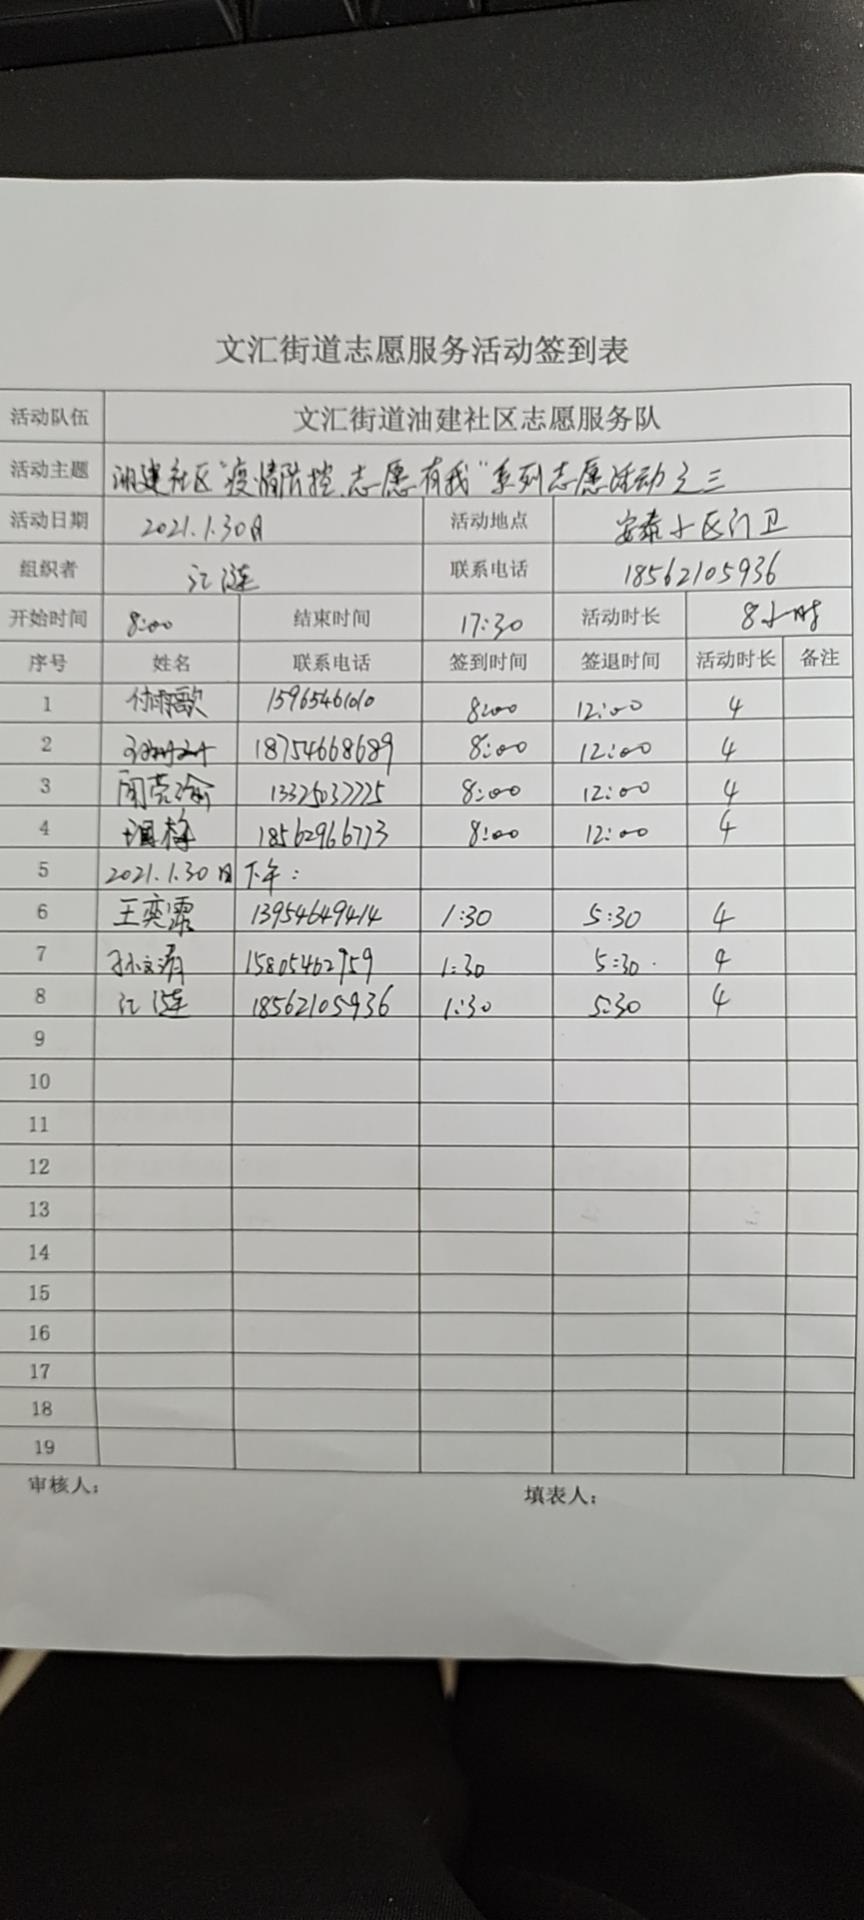 文汇街道志愿服务活动签到表
活动队伍 文汇街道油建社区志愿服务队
活动主题 油建社区"疫情防控、志愿有我"系列志愿活动之三
活动日期 2021.1.30日 活动地点 安泰小区门卫
组织者 江涟 联系电话 18562105936
开始时间 8:00 结束时间 17:30 活动时长 8小时
序号 姓名 联系电话 签到时间 签退时间 活动时长 备注
1 付雨歌 15965461010 8:00 12:00 4
2 18754668689 8:00 12:00 4
3 13325037775 8:00 12:00 4
4 18562966773 8:00 12:00 4
5 2021.1.30日下午:
6 王奕霏 13954649414 1:30 5:30 4
7 孙文涛 15805462959 1:30 5:30. 4
8 江涟 18562105936 1:30 5:30 4
9
10
11
12
13
14
15
16
17
18
19
审核人: 填表人: